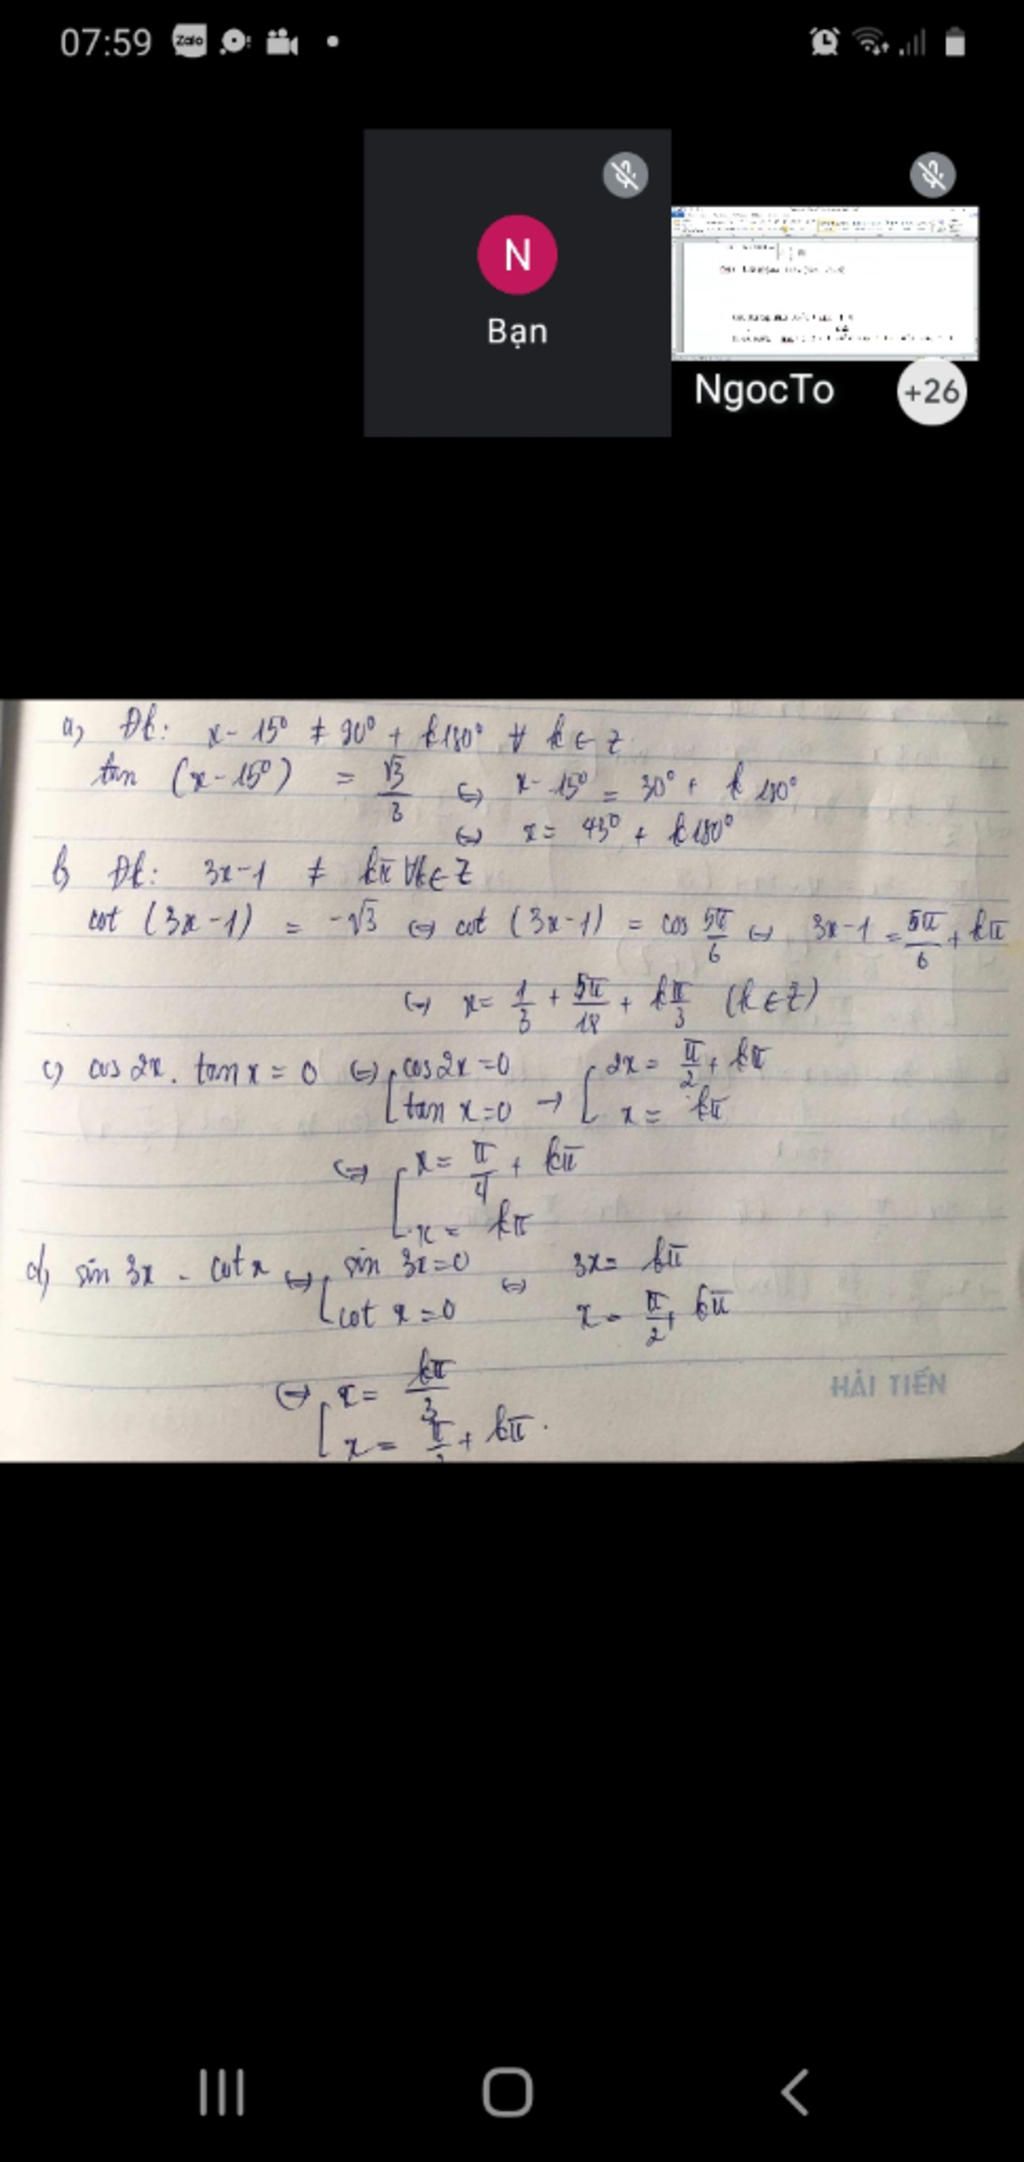 07:59 Zalo
N
Bạn
NgocTo +26
a) Đk: x - 15° ≠ 90° + k180° ∀ k ∈ Z
tan (x - 15°) = √3/3 ⇔ x - 15° = 30° + k 180°
⇔ x = 45° + k180°
b) Đk: 3x - 1 ≠ kπ ∀k ∈ Z
cot (3x - 1) = -√3 ⇔ cot (3x - 1) = cos 5π/6 ⇔ 3x - 1 = 5π/6 + kπ
⇔ x = 1/3 + 5π/18 + kπ/3 (k ∈ Z)
c) cos 2x. tan x = 0 ⇔ [cos 2x = 0 [2x = π/2 + kπ
tan x = 0 → x = kπ
⇔ [x = π/4 + kπ
x = kπ
d) sin 3x - cot x ⇔ [sin 3x = 0 ⇔ 3x = kπ
cot x = 0 x = π/2 + kπ
⇔ [x = kπ/3
HẢI TIẾN
x = π/2 + kπ.